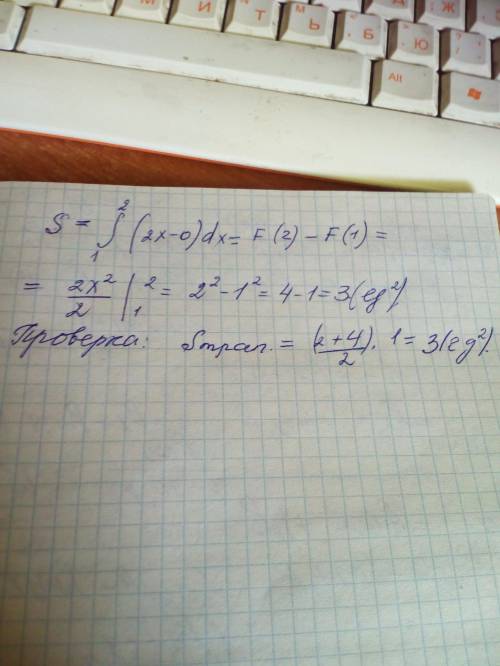 М И Т Ь Б Ю Ж
Alt
S = ∫₁² (2x-0)dx = F(2) - F(1) =
= 2x²/2 |₁² = 2² - 1² = 4 - 1 = 3(ед²)
Проверка: Sтрап. = (2+4)/2 · 1 = 3(ед²).